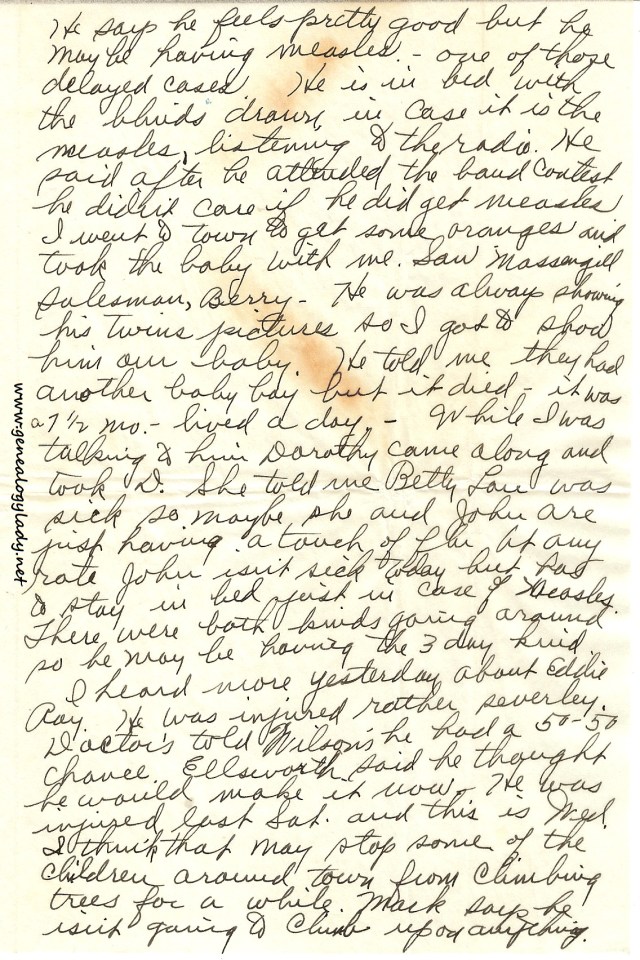 He says he feels pretty good but he
may be having measles. - one of those
delayed cases. He is in bed with
the blinds drawn, in case it is the
measles, listening to the radio. He
said after he attended the band contest
he didn't care if he did get measles
I went to town to get some oranges and
took the baby with me. Saw Massengill
salesman, Berry - He was always showing
his twins pictures so I got to show
him our baby. He told me they had
another baby boy but it died - it was
a 7 1/2 mo. - lived a day. - While I was
talking to him Dorothy came along and
took D. She told me Betty Lou was
sick so maybe she and John are
just having a touch of flu. At any
rate John isn't sick today but has
to stay in bed just in case of measles.
There were both kinds going around
so he may be having the 3 day kind
I heard more yesterday about Eddie
Ray. He was injured rather severley.
Doctor's told Wilson's he had a 50-50
chance. Ellsworth said he thought
he would make it now. He was
injured last Sat. and this is Wed.
I think that may stop some of the
children around town from climbing
trees for a while. Mark says he
isn't going to climb up on anything.
www.genealogylady.net